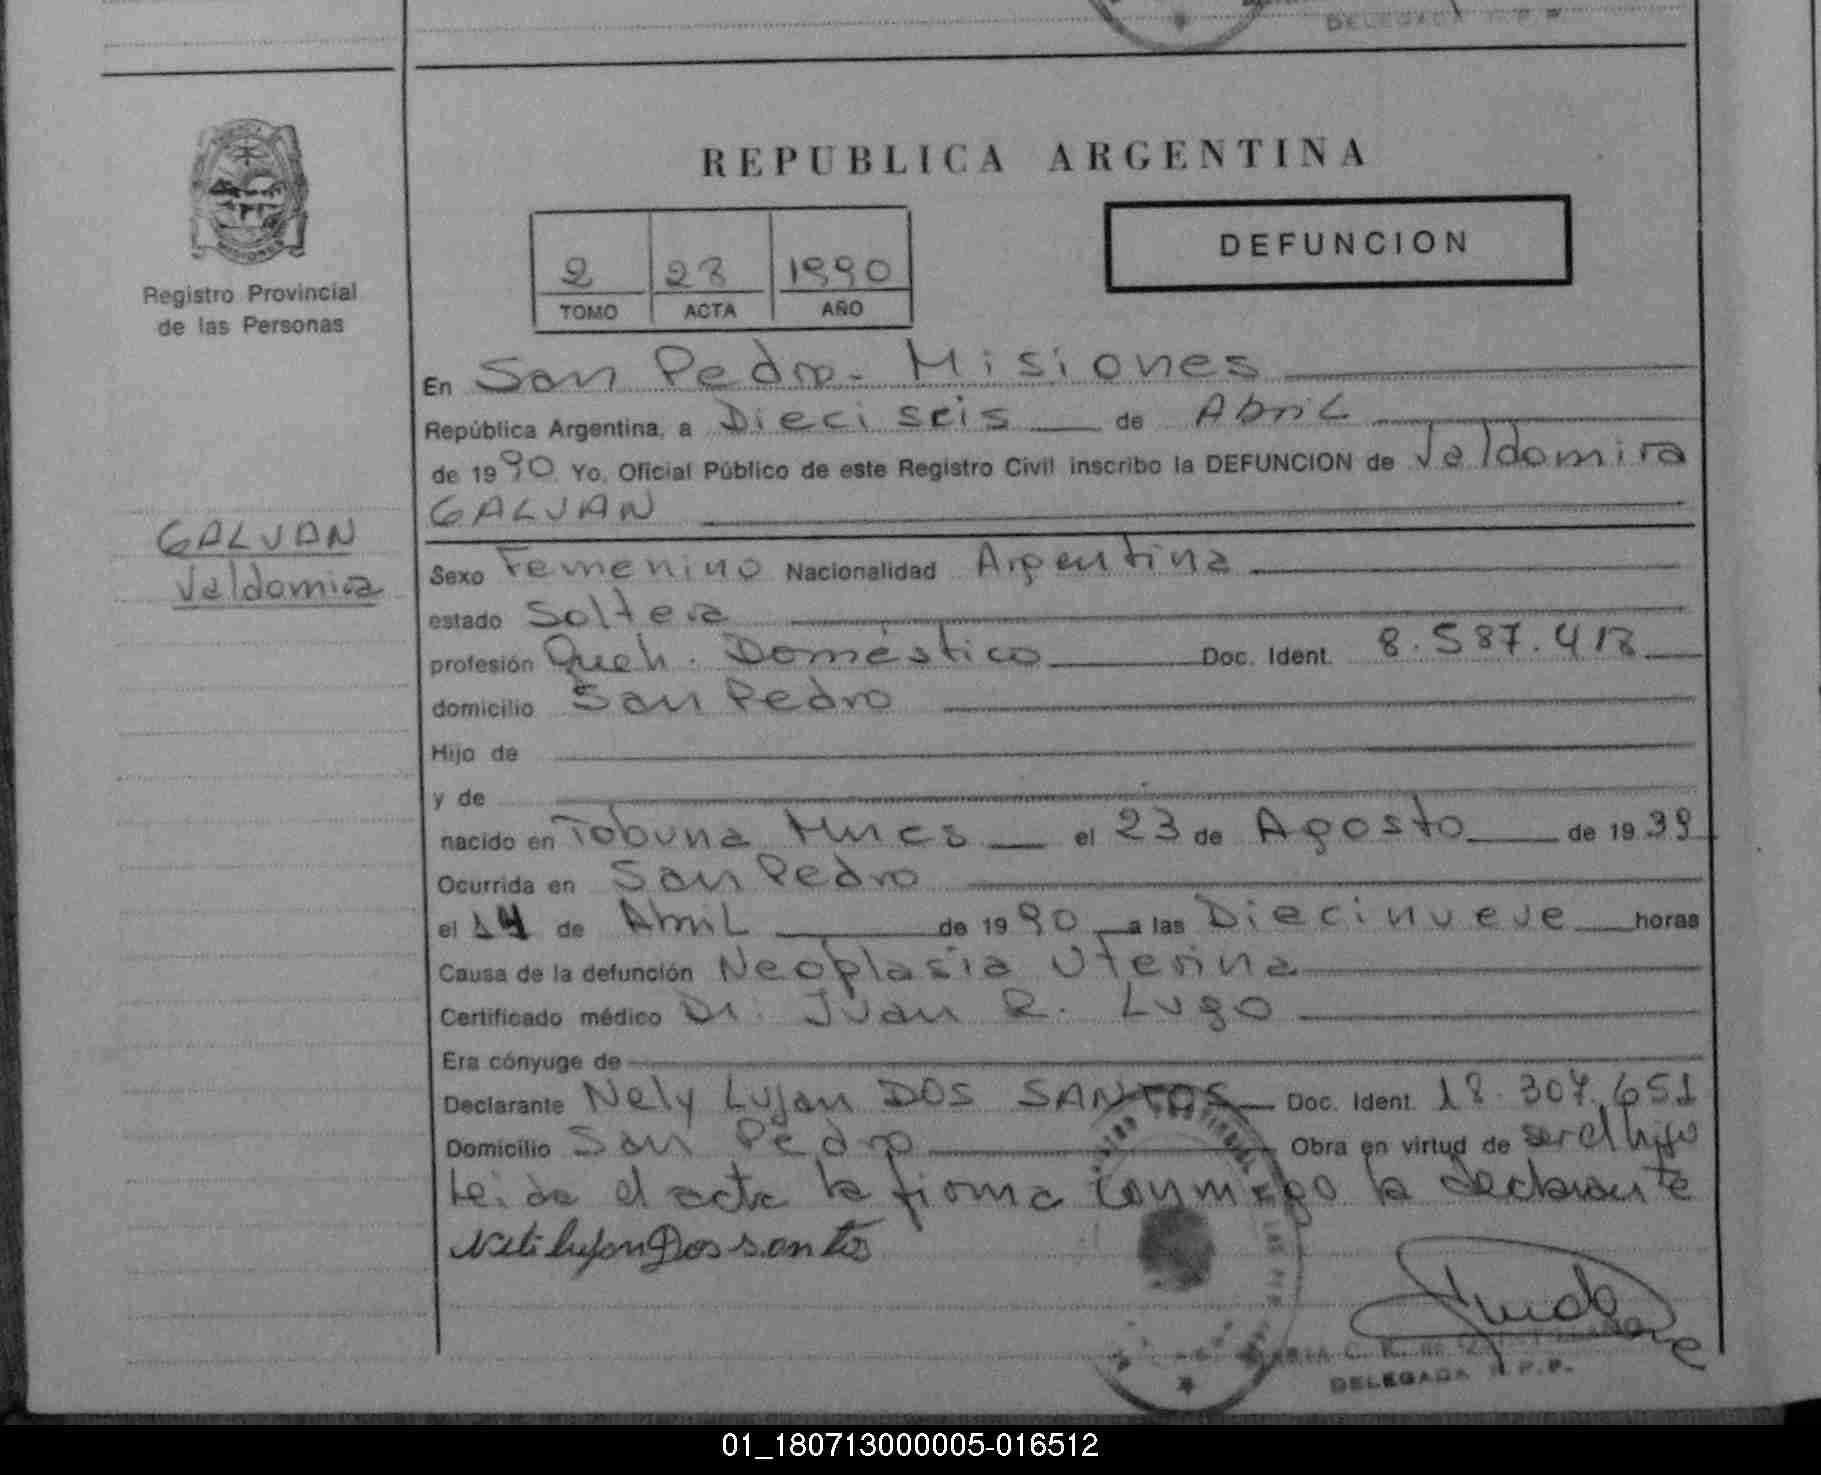 DELEGADA R.P.P.
REPUBLICA ARGENTINA
DEFUNCION
2 23 1990
TOMO ACTA AÑO
Registro Provincial
de las Personas
GALVAN
Valdomira
En San Pedro - Misiones
República Argentina, a Dieciseis de Abril
de 1990 Yo, Oficial Público de este Registro Civil inscribo la DEFUNCION de Valdomira
GALVAN
Sexo Femenino Nacionalidad Argentina
estado Soltera
profesión Queh. Doméstico Doc. Ident. 8.587.418
domicilio San Pedro
Hijo de
y de
nacido en Tobuna Mnes el 23 de Agosto de 1939
Ocurrida en San Pedro
el 14 de Abril de 1990 a las Diecinueve horas
Causa de la defunción Neoplasia Uterina
Certificado médico Dr. Juan R. Lugo
Era cónyuge de
Declarante Nely Lujan DOS SANTOS Doc. Ident. 18.307.651
Domicilio San Pedro Obra en virtud de ser el hijo
Leida el acta la firma conmigo la declarante
Neli lujan Dos santos
DELEGADA R.P.P.
01_180713000005-016512